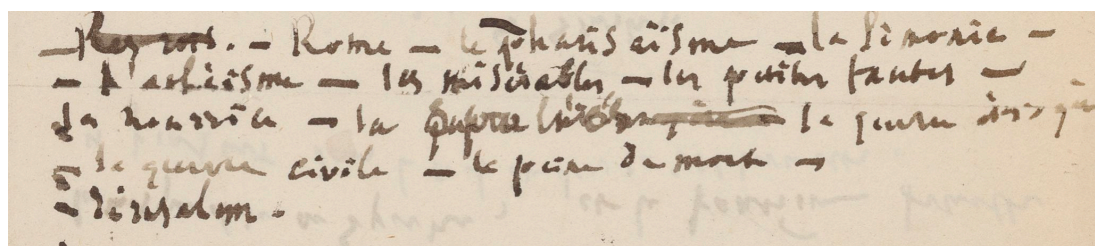 — Les rois. — Rome — le pharisaïsme — la Simonie —
— l'athéisme — les misérables — les petites fautes —
La nourrice — la — la guerre
— la guerre civile — la peine de mort —
— Jérusalem.